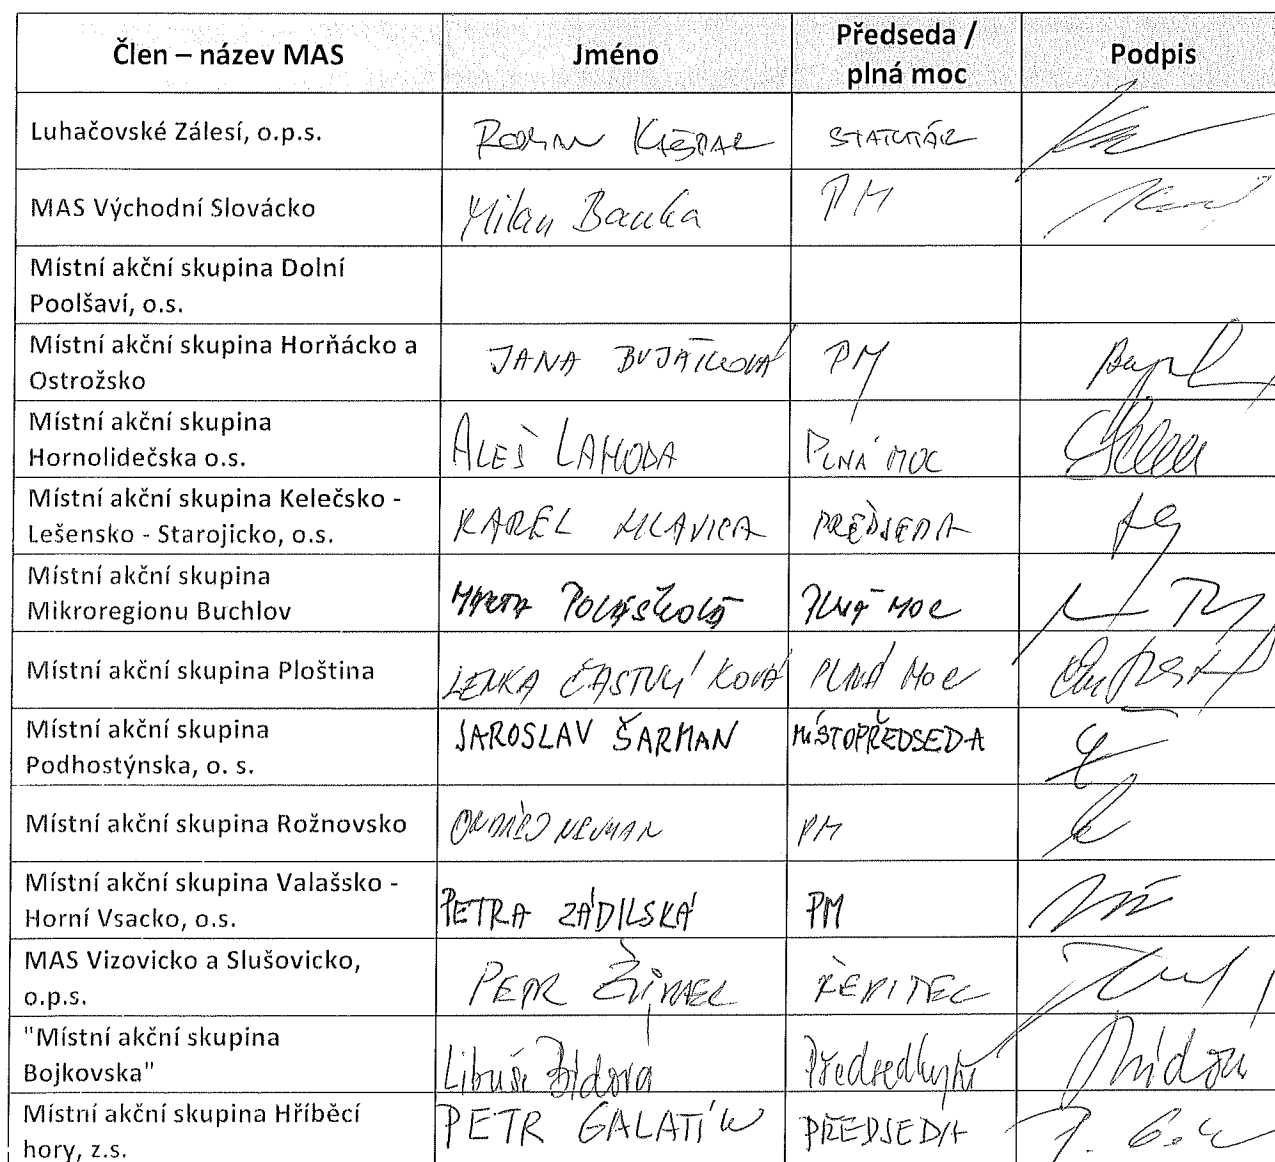 Člen – název MAS Jméno Předseda / plná moc Podpis
Luhačovské Zálesí, o.p.s. STATUTÁR
MAS Východní Slovácko Milan PM
Místní akční skupina Dolní
Poolšaví, o.s.
Místní akční skupina Horňácko a
Ostrožsko
JANA PM
Místní akční skupina
Hornolidečska o.s.
ALEŠ LAHODA PLNÁ MOC
Místní akční skupina Kelečsko -
Lešensko - Starojicko, o.s.
KAREL HLAVICA PŘEDSEDA
Místní akční skupina
Mikroregionu Buchlov
PLNÁ MOC
Místní akční skupina Ploština LENKA PLNÁ MOC
Místní akční skupina
Podhostýnska, o. s.
JAROSLAV ŠARMAN MÍSTOPŘEDSEDA
Místní akční skupina Rožnovsko ONDŘEJ NEUMAN PM
Místní akční skupina Valašsko -
Horní Vsacko, o.s.
PETRA ZÁDILSKÁ PM
MAS Vizovicko a Slušovicko,
o.p.s.
PETR ŘEDITEL
"Místní akční skupina
Bojkovska"
Libuše Předsedkyně
Místní akční skupina Hříběcí
hory, z.s.
PETR GALATÍK PŘEDSEDA